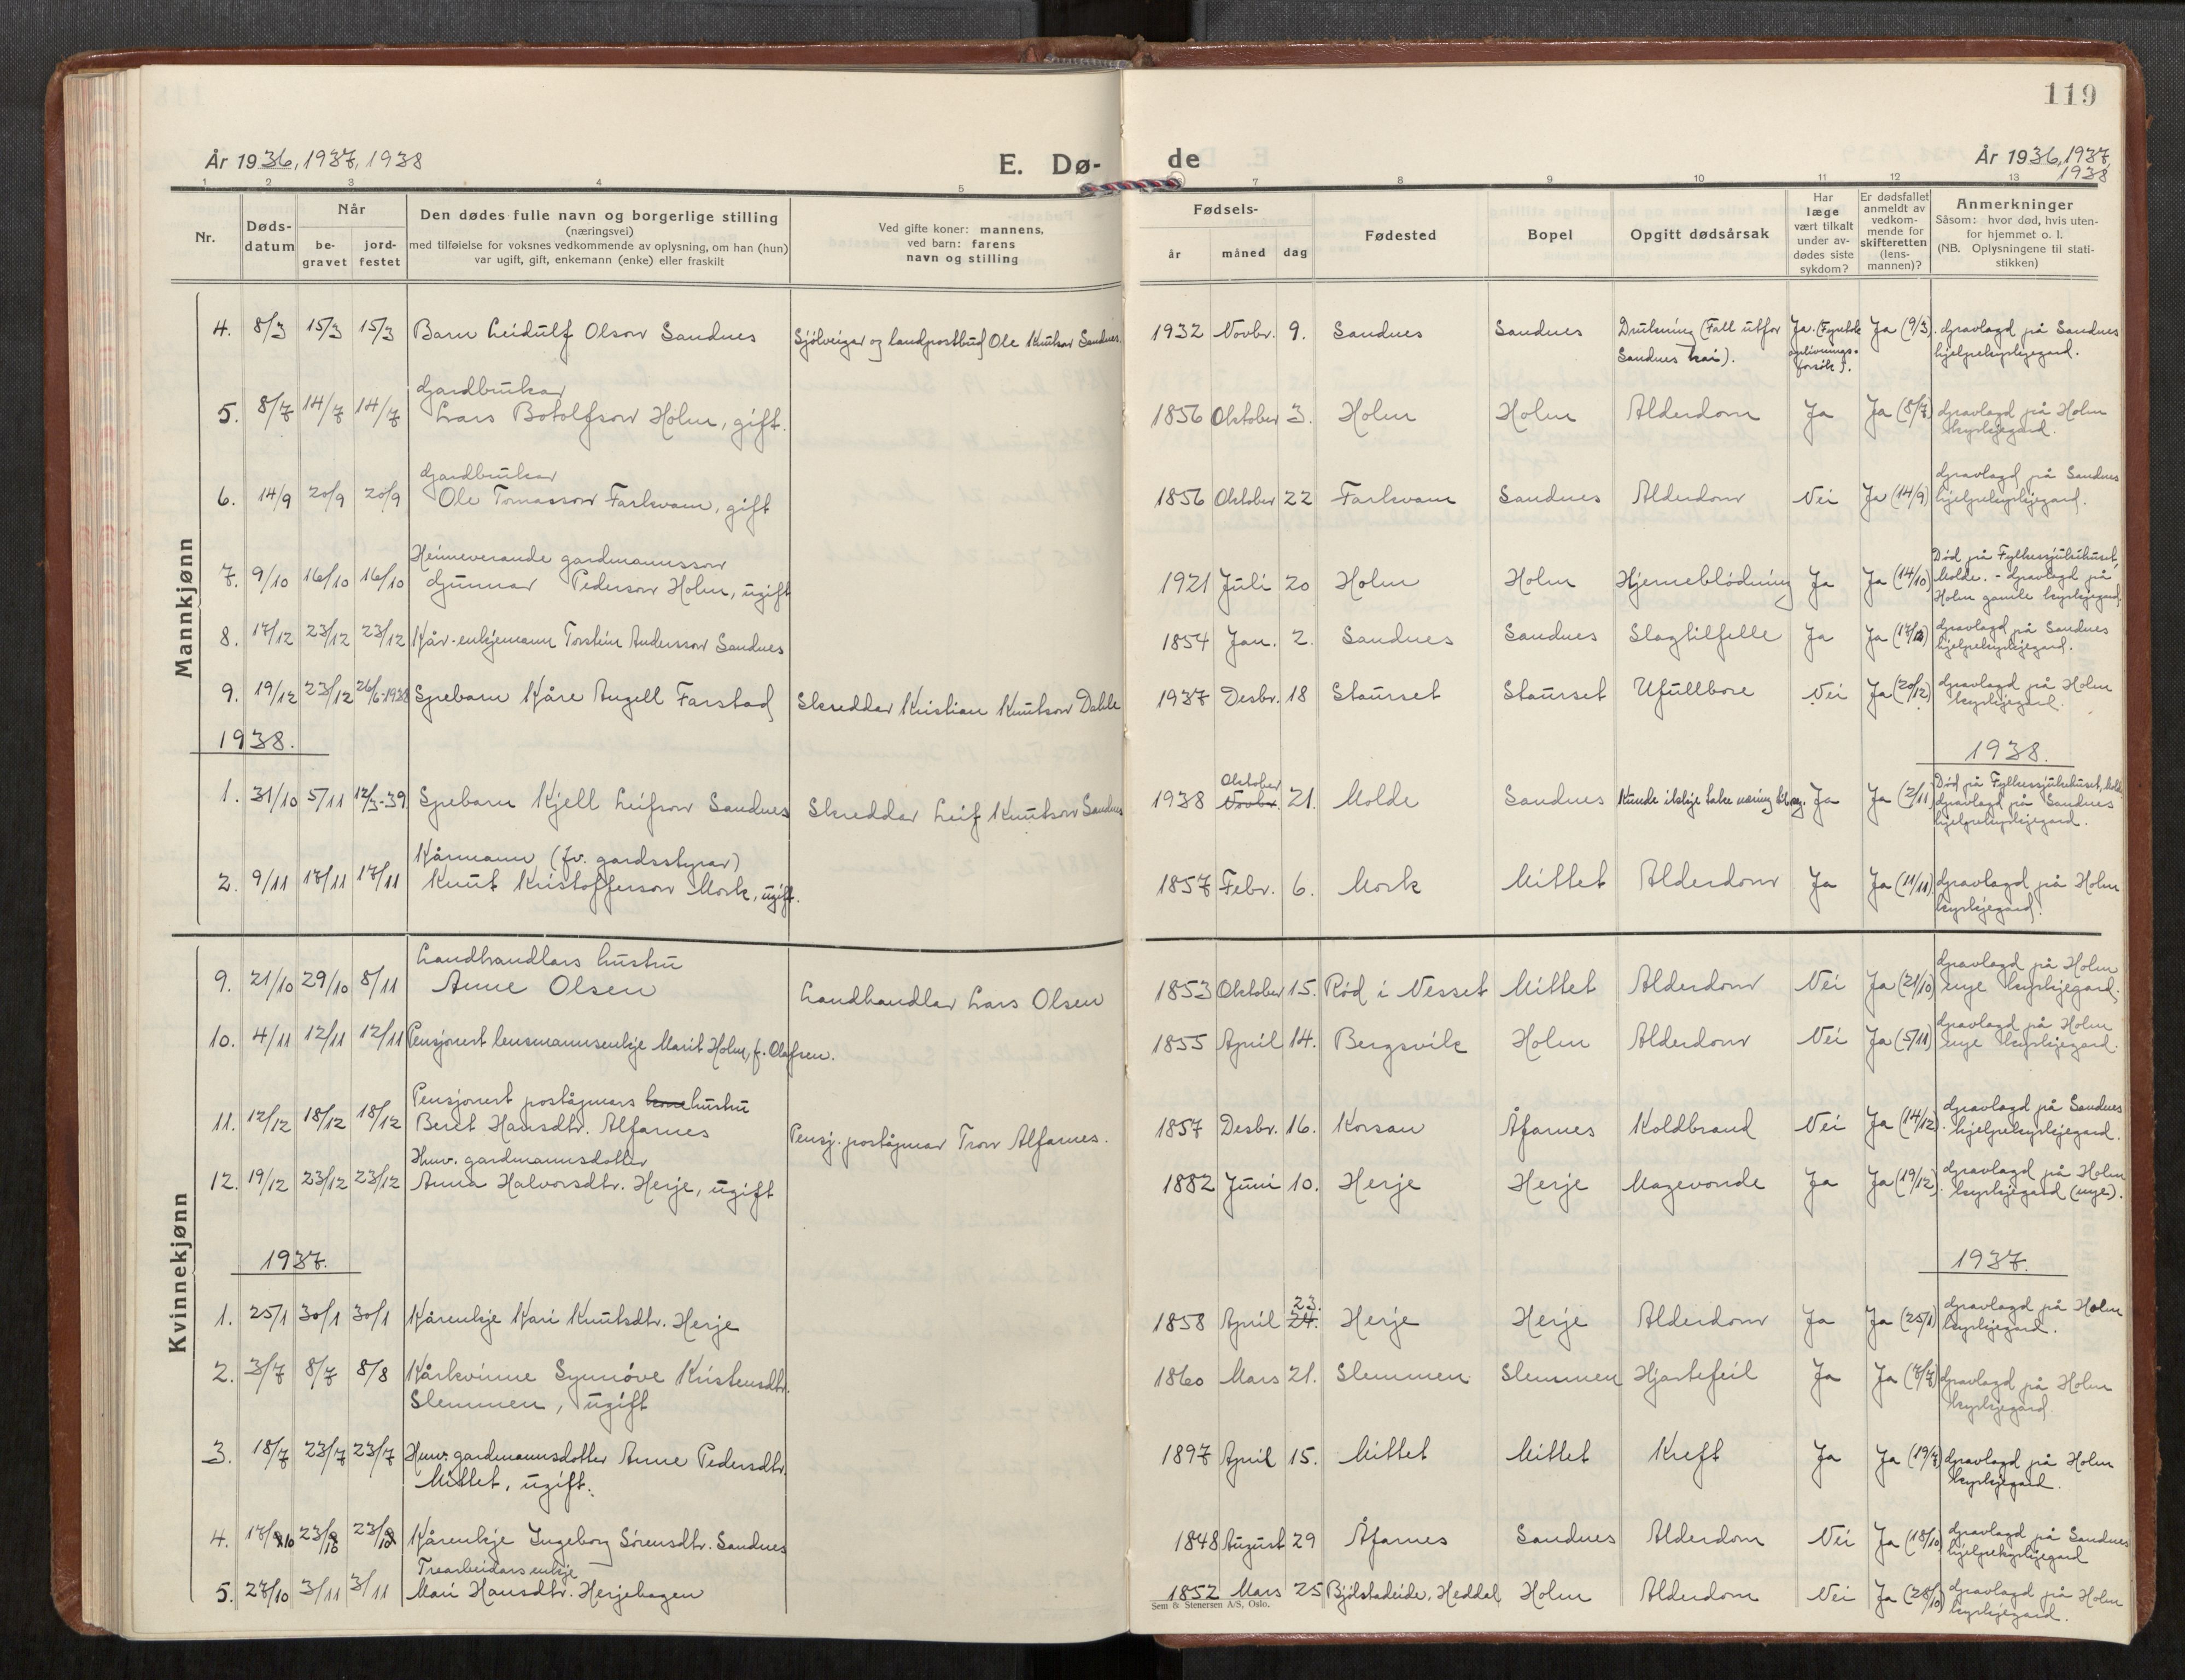 119
År 1936, 1937, 1938
E. Dø-
de
År 1936, 1937,
1938
1 2 3 4 5 7 8 9 10 11 12 13
Nr.
Døds-
datum
Når
be-
gravet
jord-
festet
Den dødes fulle navn og borgerlige stilling
(næringsvei)
med tilføielse for voksnes vedkommende av oplysning, om han (hun)
var ugift, gift, enkemann (enke) eller fraskilt
Ved gifte koner: mannens,
ved barn: farens
navn og stilling
Fødsels-
år måned dag
Fødested
Bopel
Opgitt dødsårsak
Har
læge
vært tilkalt
under av-
dødes siste
sykdom?
Er dødsfallet
anmeldt av
vedkom-
mende for
skifteretten
(lens-
mannen)?
Anmerkninger
Såsom: hvor død, hvis uten-
for hjemmet o. l.
(NB. Oplysningene til stati-
stikken)
Mannkjønn
4. 8/3 15/3 15/3 Barn Leidulf Olson Sandnes Sjölveigar og landpostbud Ole Knutson Sandnes. 1932 Novbr. 9. Sandnes Sandnes Drukning (Fall utfor Ja. Ja (9/3). Gravlagd på Sandnes
Sandnes kai). oplivnings- hjelpekyrkjegard.
forsök).
Gardbrukar
5. 8/7 14/7 14/7 Lars Botolfson Holm, gift. 1856 Oktober 3. Holm Holm Alderdom Ja Ja (8/7) Gravlagd på Holm
kyrkjegard.
Gardbrukar
6. 14/9 20/9 20/9 Ole Tomasson Farkvam, gift 1856 Oktober 22 Farkvam Sandnes Alderdom Nei Ja (14/9) Gravlagd på Sandnes
hjelpekyrkjegard.
Heimeverande gardmannsson
7. 9/10 16/10 16/10 Gunnar Pederson Holm, ugift 1921 Juli 20 Holm Holm Hjerneblödning Ja Ja (14/10) Död på Fylkessjukehuset,
Molde. - Gravlagd på
Holm gamle kyrkjegard.
8. 17/12 23/12 23/12 Kår-enkjemann Torstein Andersson Sandnes 1854 Jan. 2. Sandnes Sandnes Slagtilfelle Ja Ja (17/12) Gravlagd på Sandnes
hjelpekyrkjegard.
9. 19/12 23/12 26/6-1938 Spebarn Kåre Angell Farstad Skreddar Kristian Knutson Dahle 1937 Desbr. 18 Staurset Staurset Ufullbore Nei Ja (20/12) Gravlagd på Holm
kyrkjegard.
1938.
1938.
1. 31/10 5/11 12/3-39 Spebarn Kjell Leifson Sandnes Skreddar Leif Knutson Sandnes 1938 Oktober Novbr. 21. Molde Sandnes Kunde ikkje take næring til seg. Ja Ja (2/11) Död på Fylkessjukehuset, Molde
Gravlagd på Sandnes
hjelpekyrkjegard.
Kårmann (fv. gardsstyrar)
2. 9/11 17/11 17/11 Knut Kristofferson Mork, ugift. 1857 Febr. 6. Mork Mittet Alderdom Ja Ja (11/11) Gravlagd på Holm
kyrkjegard.
Kvinnekjønn
Landhandlars hustru
9. 21/10 29/10 8/11 Anne Olsen Landhandlar Lars Olsen 1853 Oktober 15. Röd i Nesset Mittet Alderdom Nei Ja (21/10) Gravlagd på Holm
nye kyrkjegard.
10. 4/11 12/11 12/11 Pensjonert lensmannsenkje Marit Holm, f. Olafsen. 1855 April 14. Bergsvik Holm Alderdom Nei Ja (5/11) Gravlagd på Holm
nye kyrkjegard.
Pensjonert poståpnars kone hustru
11. 12/12 18/12 18/12 Beret Hansdtr. Alfarnes Pensj. poståpnar Tron Alfarnes. 1857 Desbr. 16. Korsan Åfarnes Koldbrand Nei Ja (14/12). Gravlagd på Sandnes
hjelpekyrkjegard.
Hmv. gardmannsdotter
12. 19/12 23/12 23/12 Anna Halvorsdtr. Herje, ugift 1882 Juni 10. Herje Herje Magevonde Ja Ja (19/12). Gravlagd på Holm
kyrkjegard (nye).
1937.
1937.
1. 25/1 30/1 30/1 Kårenkje Kari Knutsdtr. Herje 1858 April 23. 24. Herje Herje Alderdom Ja Ja (25/1) Gravlagd på Holm
kyrkjegard.
2. 3/7 8/7 8/8 Kårkvinne Synnöve Kristensdtr. 1860 Mars 21. Slemmen Slemmen Hjartefeil Ja Ja (7/7) Gravlagd på Holm
Slemmen, ugift kyrkjegard.
3. 18/7 23/7 23/7 Hmv. gardmannsdotter Anne Pedersdtr. 1897 April 15. Mittet Mittet Kreft Ja Ja (19/7) Gravlagd på Holm
Mittet, ugift. kyrkjegard.
4. 17/10 23/10 23/10 Kårenkje Ingeborg Sörensdtr. Sandnes 1848 August 29 Åfarnes Sandnes Alderdom Nei Ja (18/10) Gravlagd på Sandnes
hjelpekyrkjegard
Trearbeidars enkje
5. 27/10 3/11 3/11 Mari Hansdtr. Herjehagen 1852 Mars 25 Bjölstadeide, Heddal Holm Alderdom Nei Ja (28/10) Gravlagd på Holm
kyrkjegard.
Sem & Stenersen A/S, Oslo.